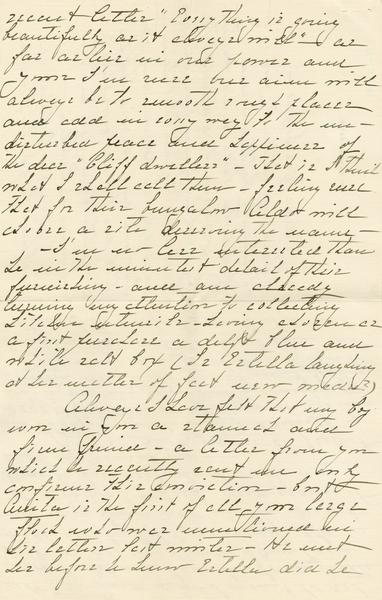 recent letter "Everything is going
beautifully as it always will" - as
far as lies in our power and
yours I'm sure our aim will
always be to smooth rough places
and add in every way to the un-
disturbed peace and happiness of
the dear "Cliff dwellers" - That is I think
what I shall call them - feeling sure
that for their bungalow Aldo will
choose a site deserving the name -
- I'm no less interested than
he in the minutest detail of their
furnishing - and am already
turning my attention to collecting
kitchen utensils - having chosen as
a first purchase a delft blue and
white salt box (Is Estella laughing
at her mother of fact new mother?)
Always I have felt that my boy
won in you a staunch and
firm friend - a letter from you
which he recently sent me only
confirms this conviction - but
Anita is the first of all your large
flock who was mentioned in
his letters last winter - He met
her before he knew Estella did he